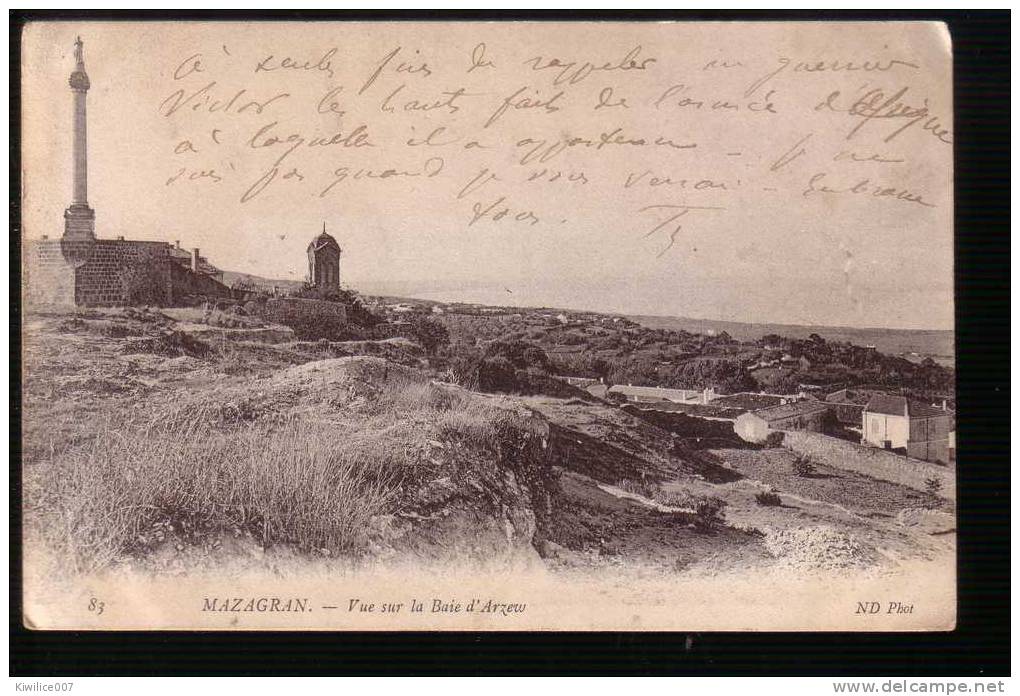 à seule fin de rappeler au guerrier
Victor les hauts faits de l'armée d'Afrique
à laquelle il a appartenu — Je ne
sais pas quand je vous verrai — Embrasse
tous.
83 MAZAGRAN. — Vue sur la Baie d'Arzew ND Phot
Kiwilice007 www.delcampe.net